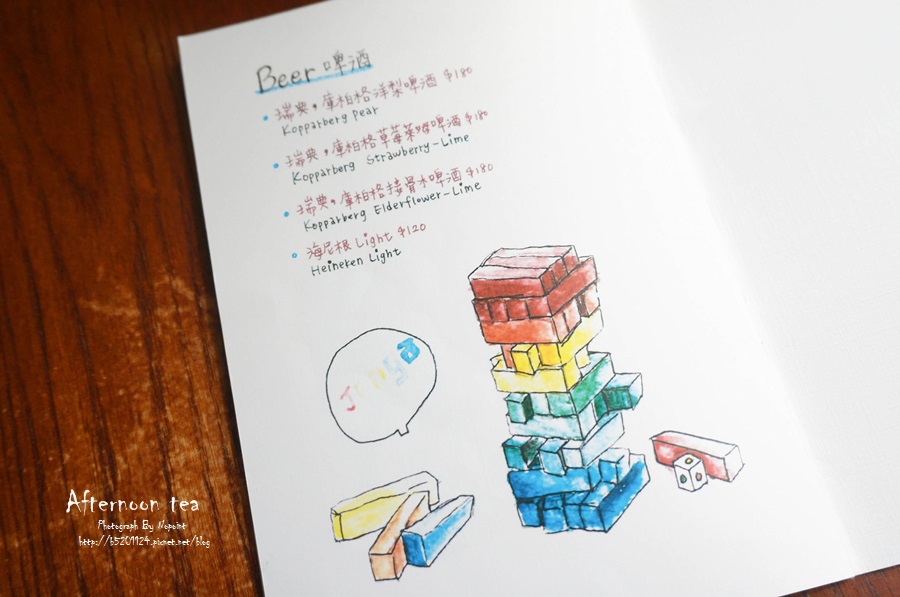 Beer 啤酒
瑞典，庫柏格洋梨啤酒 $180
Kopparberg pear
瑞典，庫柏格草莓萊姆啤酒 $180
Kopparberg Strawberry-Lime
瑞典，庫柏格接骨木啤酒 $180
Kopparberg Elderflower-Lime
海尼根 Light $120
Heineken Light
Jenga
Afternoon tea
Photograph By Nopoint
http://b5201124.pixnet.net/blog